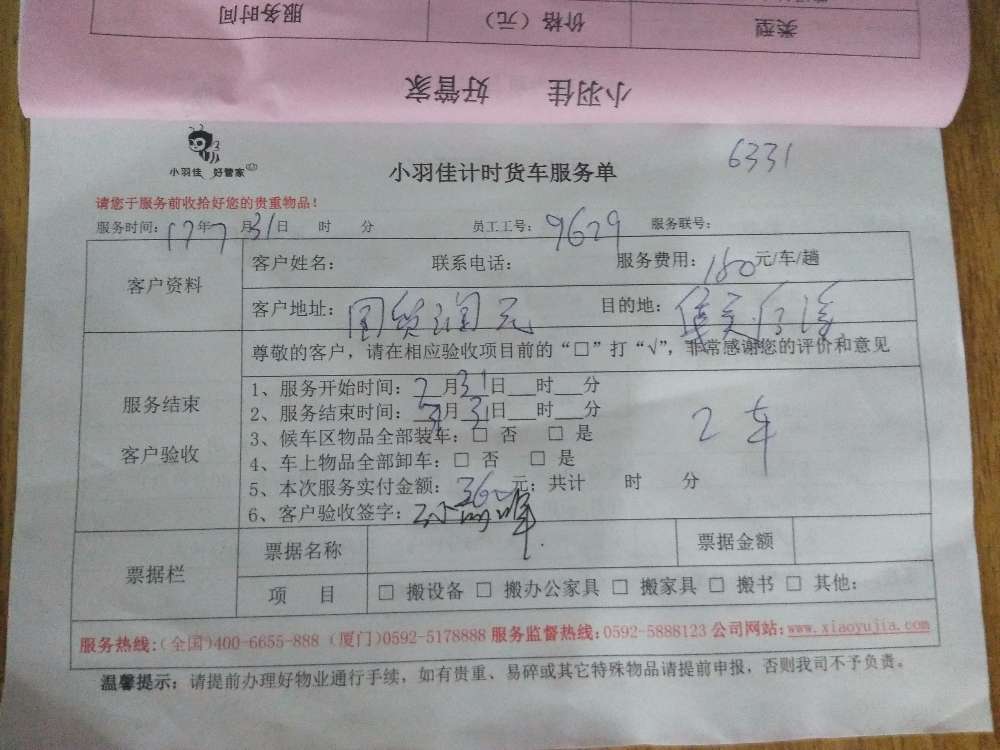 类型 价格（元） 服务时间
小羽佳 好管家
小羽佳 好管家
小羽佳计时货车服务单
6331
请您于服务前收拾好您的贵重物品！
服务时间：17年7月31日 时 分 员工工号：9629 服务联号：
客户资料
客户姓名： 联系电话： 服务费用：180元/车/趟
客户地址：国贸润园 目的地：
尊敬的客户，请在相应验收项目前的“□”打“√”，非常感谢您的评价和意见
服务结束
客户验收
1、服务开始时间：7月31日___时___分
2、服务结束时间：7月31日___时___分
3、候车区物品全部装车：□ 否 □ 是
4、车上物品全部卸车：□ 否 □ 是
5、本次服务实付金额：360元；共计 时 分
6、客户验收签字：
2车
票据栏
票据名称 票据金额
项 目 □ 搬设备 □ 搬办公家具 □ 搬家具 □ 搬书 □ 其他：
服务热线：（全国）400-6655-888（厦门）0592-5178888 服务监督热线：0592-5888123 公司网站：www.xiaoyujia.com
温馨提示：请提前办理好物业通行手续，如有贵重、易碎或其它特殊物品请提前申报，否则我司不予负责。